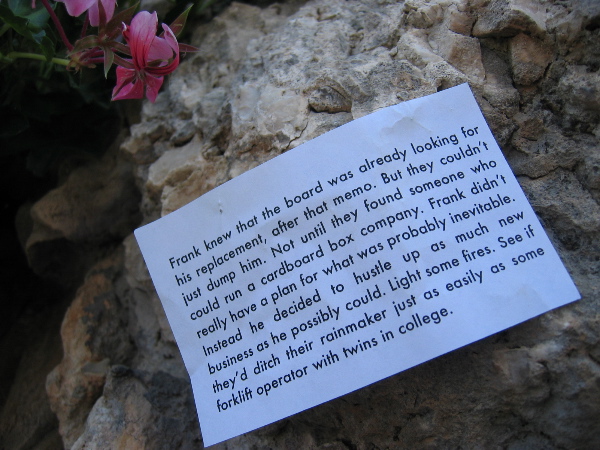 Frank knew that the board was already looking for
his replacement, after that memo. But they couldn't
just dump him. Not until they found someone who
could run a cardboard box company. Frank didn't
really have a plan for what was probably inevitable.
Instead he decided to hustle up as much new
business as he possibly could. Light some fires. See if
they'd ditch their rainmaker just as easily as some
forklift operator with twins in college.